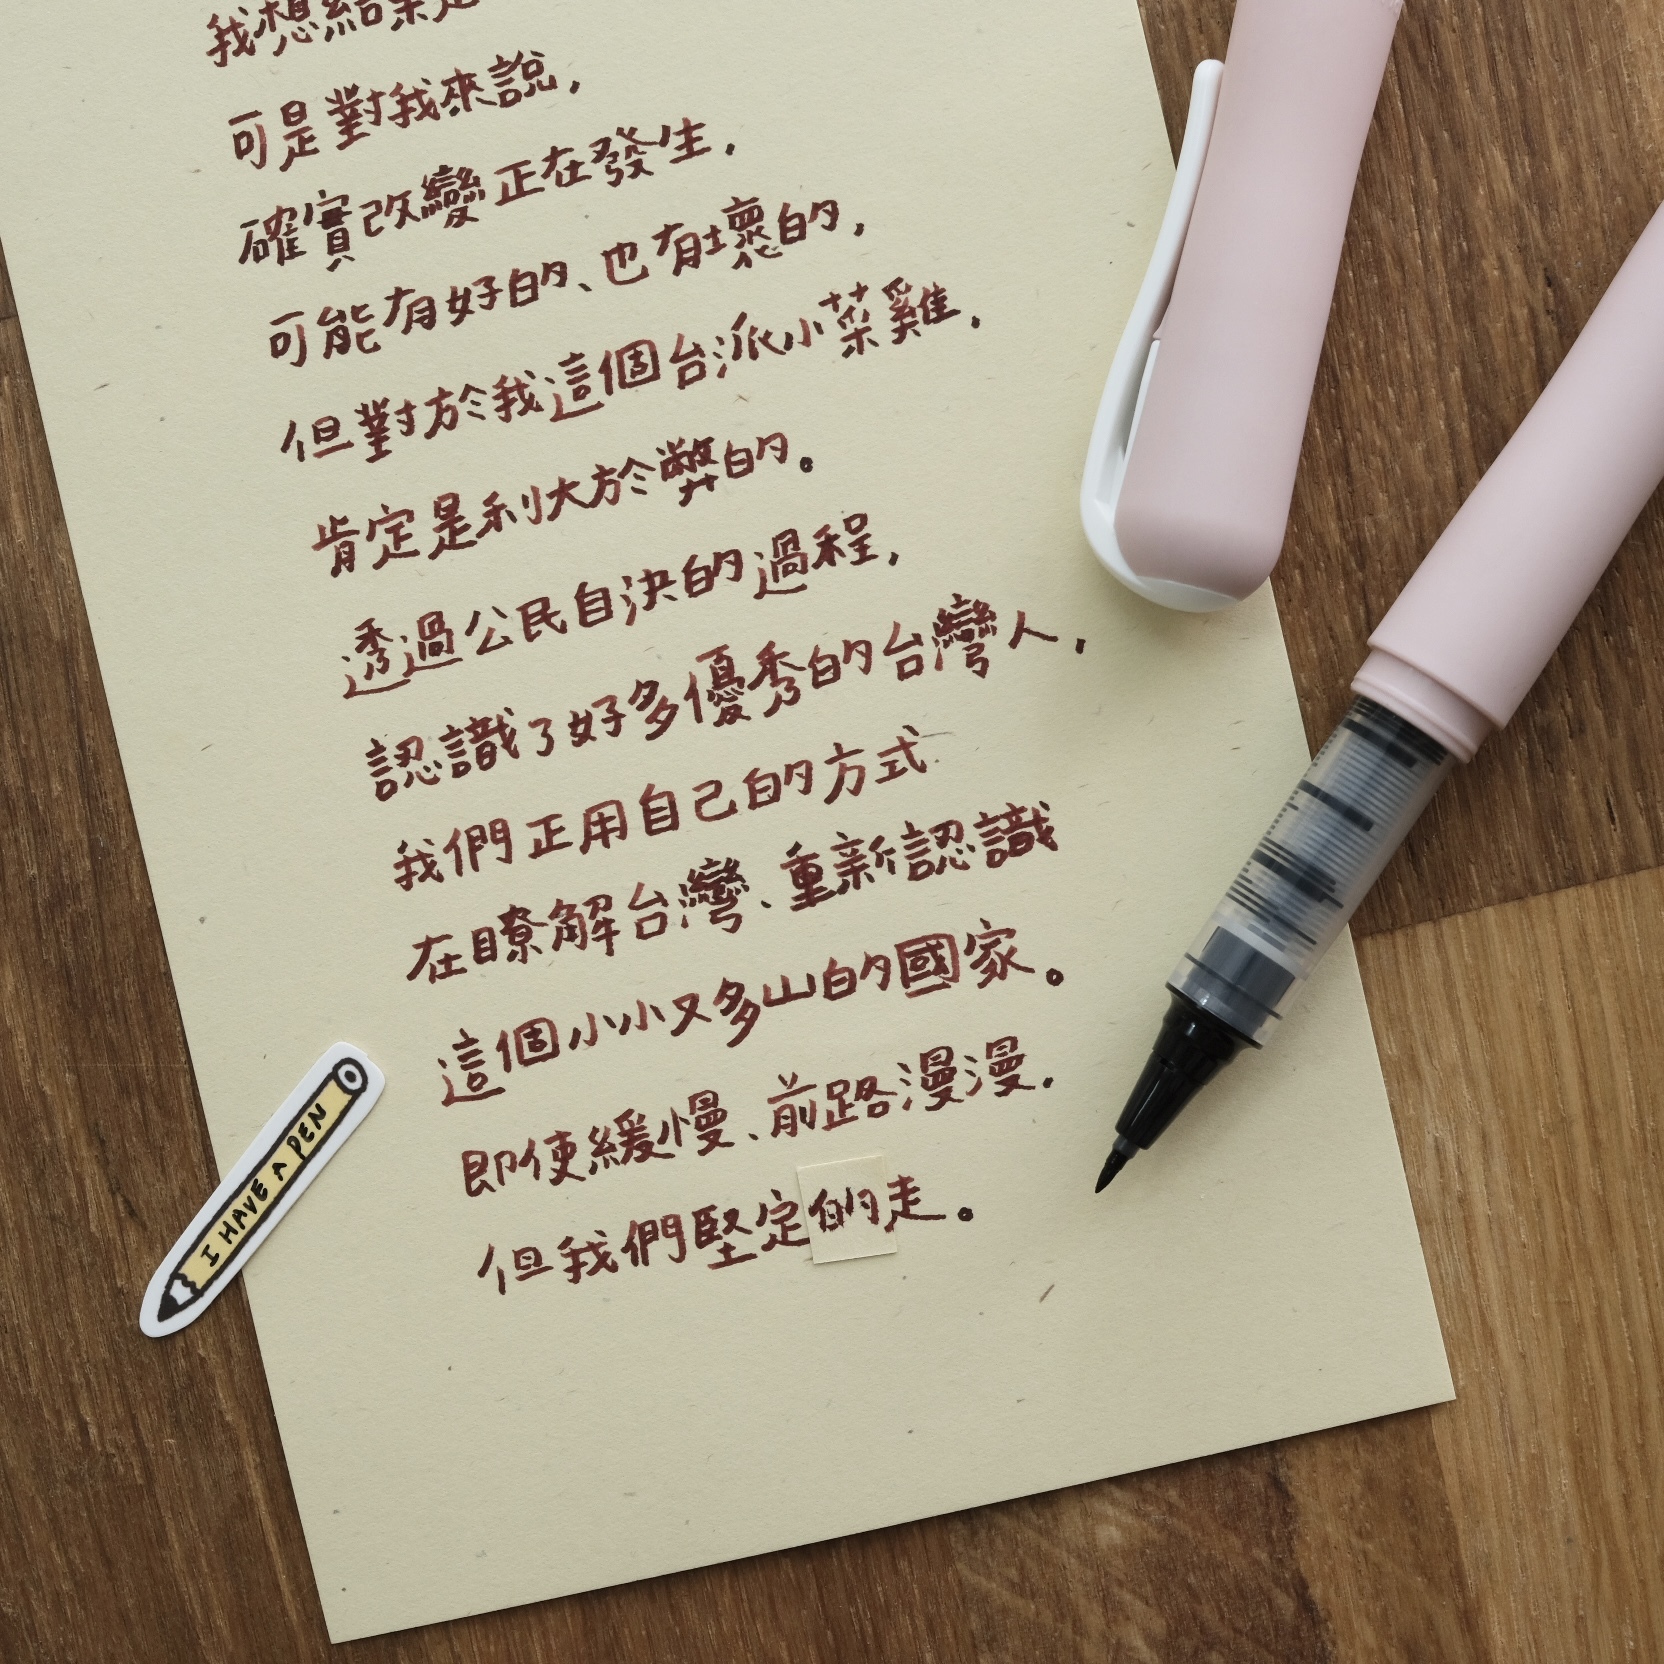 我想結果是
可是對我來說，
確實改變正在發生，
可能有好的、也有壞的，
但對於我這個台派小菜雞，
肯定是利大於弊的。
透過公民自決的過程，
認識了好多優秀的台灣人，
我們正用自己的方式
在瞭解台灣、重新認識
這個小小又多山的國家。
即使緩慢、前路漫漫，
但我們堅定的走。
I HAVE A PEN